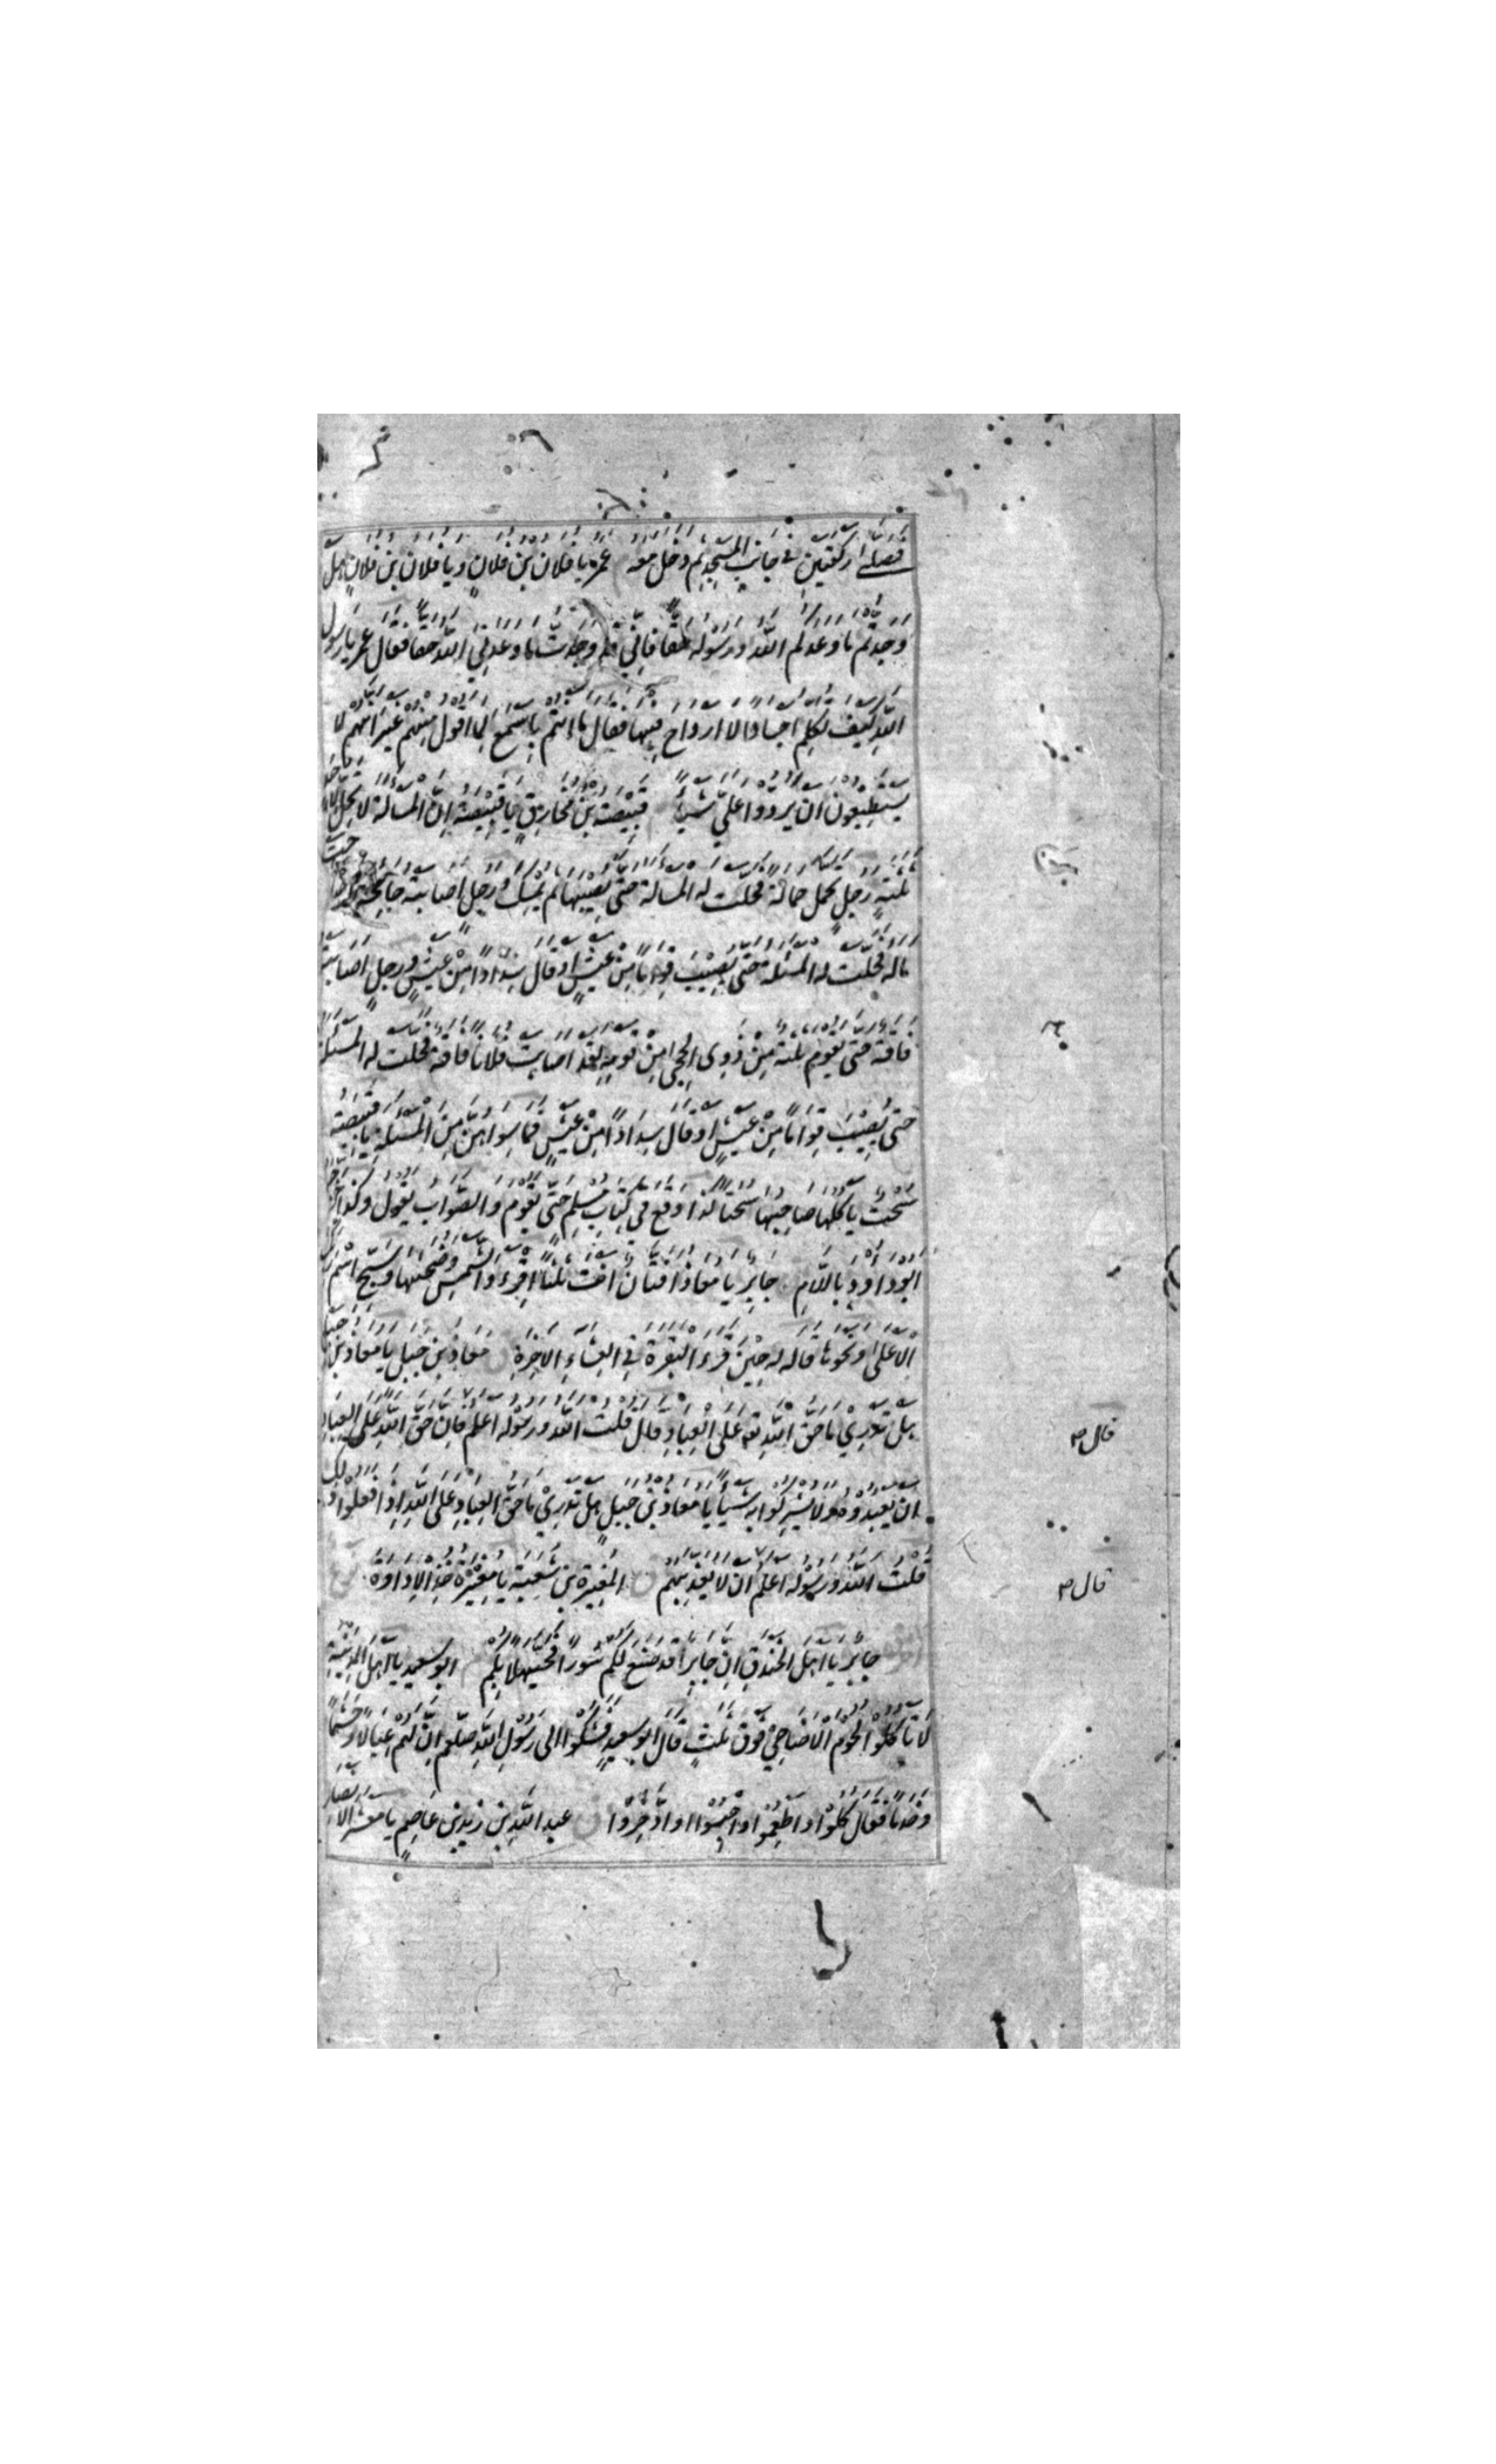 فصلى ركعتين في جانب المسجد ثم دخل معه عمر يا فلان بن فلان ويا فلان بن فلان هل
وجدتم ما وعدكم الله ورسوله حقا فاني وجدت ما وعدني الله حقا فقال عمر يا رسول
الله كيف تكلم اجسادا لا ارواح فيها فقال ما انتم باسمع لما اقول منهم غير انهم لا
يستطيعون ان يردوا علي شيئا قبيصة بن مخارق يا قبيصة ان المسألة لا تحل الا لاحد
ثلثة رجل تحمل حمالة فحلت له المسألة حتى يصيبها ثم يمسك ورجل اصابته جائحة اجتاحت
ماله فحلت له المسئلة حتى يصيب قواما من عيش او قال سدادا من عيش ورجل اصابته
فاقة حتى يقوم ثلثة من ذوى الحجى من قومه لقد اصابت فلانا فاقة فحلت له المسئلة
حتى يصيب قواما من عيش او قال سدادا من عيش فما سواهن من المسئلة يا قبيصة
سحت ياكلها صاحبها سحتا كذا وقع في كتاب مسلم حتى يقوم والصواب يقول وكذا اخرجه
ابو داود باللام جابر يا معاذ افتان انت ثلثا اقرء والشمس وضحيها وسبح اسم ربك
الاعلى ونحوها قاله له حين قرء البقرة في العشاء الاخرة معاذ بن جبل يا معاذ بن جبل
هل تدري ما حق الله تع على العباد قال قلت الله ورسوله اعلم فان حق الله على العباد
ان يعبدوه ولا يشركوا به شيئا يا معاذ بن جبل هل تدري ما حق العباد على الله اذا فعلوا ذلك
قلت الله ورسوله اعلم ان لا يعذبهم المغيرة بن شعبة يا مغيرة خذ الاداوة
جابر يا اهل الخندق ان جابرا قد صنع لكم سورا فحيهلا بكم ابو سعيد يا اهل المدينة
لا تاكلوا لحوم الاضاحي فوق ثلث قال ابو سعيد فشكوا الى رسول الله صلعم ان لهم عيالا وحشما
وخدما فقال كلوا واطعموا واحبسوا او ادخروا عبد الله بن زيد بن عاصم يا معشر الانصار
قال
قال